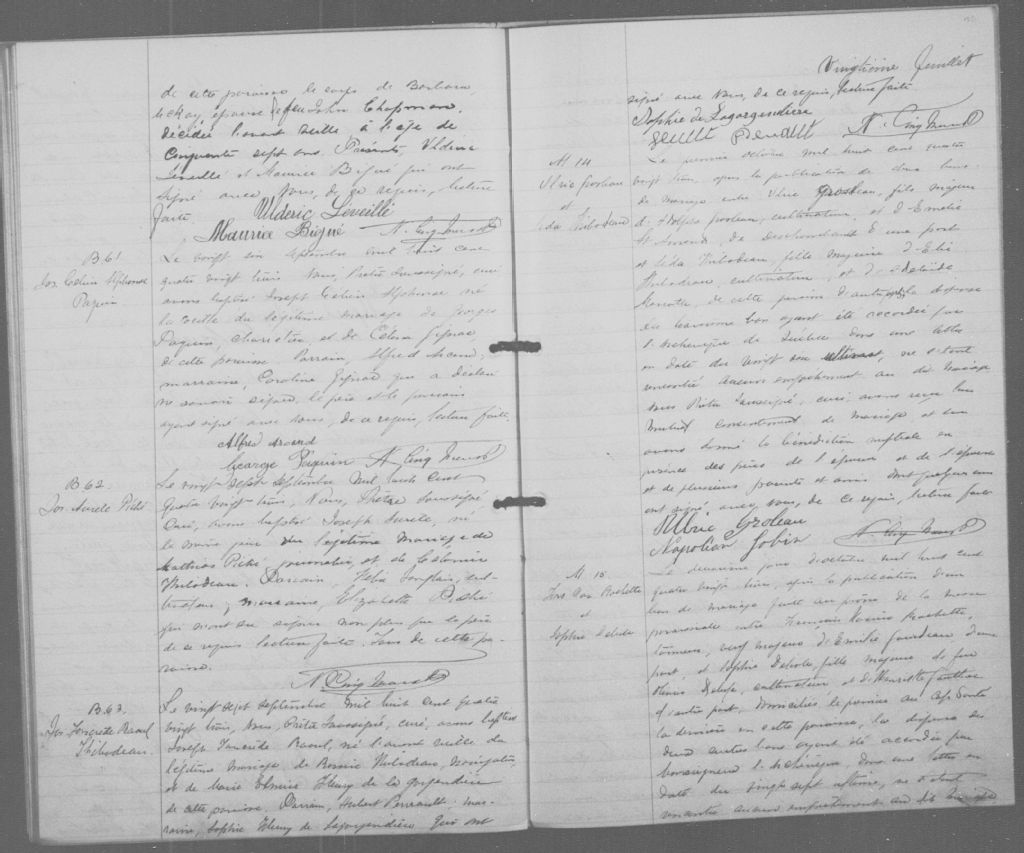 de cette paroisse le corps de Barbara
McKay, épouse de feu John Chapman,
décédée l'avant veille à l'age de
Cinquante sept ans. Présents, Uldéric
Léveillé et Maurice Bigué qui ont
signé avec Nous, de ce requis, lecture
faite. Uldéric Léveillé
Maurice Bigué N. Cinq Mars Ptre
B. 61.
Jos. Célin Alphonse
Paquin
Le vingt six septembre mil huit cent
quatre vingt trois Nous, Prêtre soussigné, curé
avons baptisé Joseph Célin Alphonse né
la veille du légitime mariage de Georges
Paquin, charretier, et de Célina Gignac,
de cette paroisse. Parrain, Alfred Arcand,
marraine, Caroline Gignac qui a déclaré
ne savoir signer, le père et le parrain
ayant signé avec nous, de ce requis, lecture faite.
Alfred Arcand
George Paquin N. Cinq Mars Ptre
B. 62.
Jos. Aurèle Piché
Le vingt sept septembre mil huit cent
quatre vingt trois, Nous, Prêtre soussigné,
Curé, avons baptisé Joseph Aurèle, né
le même jour du légitime mariage de
Mathias Piché, journalier, et de
Thibodeau. Parrain, Félix Langlais,
marraine, Elizabeth Piché
qui n'ont su signer non plus que le père
de ce requis lecture faite. Tous de cette pa-
roisse.
N. Cinq Mars Ptre
B. 63.
Raoul
Thibodeau.
Le vingt sept septembre mil huit cent quatre
vingt trois, Nous, Prêtre soussigné, curé, avons baptisé
Joseph Raoul, né l'avant veille du
légitime mariage de Thibodeau, navigateur,
et de Marie Elmire Fleury de la Gorgendière
de cette paroisse, Parrain, Hubert Perrault, mar-
raine, Sophie Fleury de Lagorgendière qui ont
Vingtième feuillet
signé avec Nous, de ce requis, lecture faite
Sophie de Lagorgendière
Perrault N. Cinq Mars Ptre
M 14
Ulric Groleau
et
Léda Thibodeau
Le premier octobre mil huit cent quatre
vingt trois, après la publication de deux bans
de mariage entre Ulric Groleau, fils majeur
d'Adolphe Groleau, cultivateur, et d'Emélie
St Amand, de Deschambault d'une part
et Léda Thibodeau, fille majeure d'Elie
Thibodeau, cultivateur, et d'Adélaïde
de cette paroisse d'autre part, la dispense
du troisième ban ayant été accordée par
l'archevêque de Québec dans une lettre
en date du vingt six ultimo, ne s'étant
rencontré aucun empêchement au dit mariage
Nous Prêtre soussigné, curé, avons reçu leur
mutuel consentement de mariage et leur
avons donné la bénédiction nuptiale en
présence des pères de l'époux et de l'épouse
et de plusieurs parents et amis dont quelques uns
ont signé avec nous, de ce requis, lecture faite
Ulric Groleau
Napoléon Gobin N. Cinq Mars Ptre
M 15
Frs Xav. Rochette
et
Sophie Delisle
Le deuxième jour d'octobre mil huit cent
quatre vingt trois, après la publication d'un
ban de mariage faite au prône de la messe
paroissiale entre François Xavier Rochette,
veuf majeur d'Emilie d'une
part, et Sophie Delisle, fille majeure de feu
Delisle, cultivateur et d'Henriette Gauthier
d'autre part, domiciliés le premier au Cap Santé
la dernière en cette paroisse, les dispenses des
deux autres bans ayant été accordées par
Monseigneur l'Archevêque, dans une lettre en
date du vingt sept ultimo, ne s'étant
rencontré aucun empêchement au dit mariage